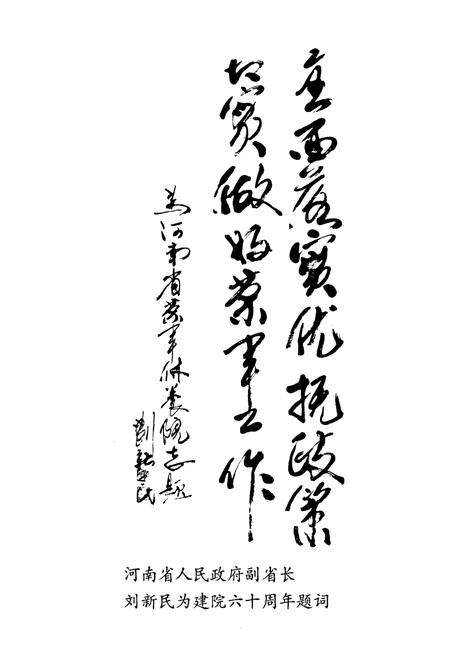 全面落实优抚政策
切实做好荣军工作
为河南省荣军休养院志题
刘新民
河南省人民政府副省长
刘新民为建院六十周年题词